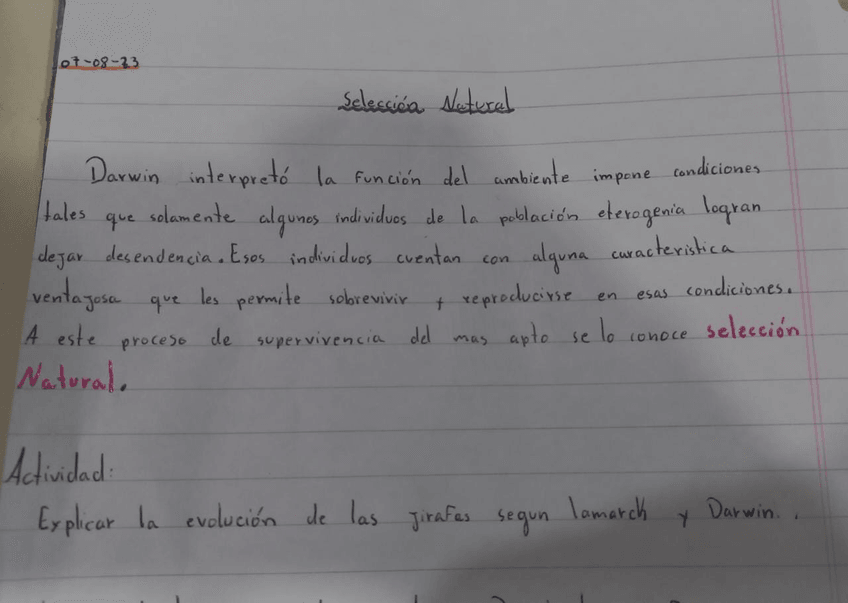 07-08-23
Selección Natural
Darwin interpretó la Función del ambiente impone condiciones
tales que solamente algunos individuos de la población eterogenia logran
dejar desendencia. Esos individuos cuentan con alguna caracteristica
ventajosa que les permite sobrevivir y reproducirse en esas condiciones.
A este proceso de supervivencia del mas apto se lo conoce selección
Natural.
Actividad:
Explicar la evolución de las jirafas segun lamarch y Darwin..